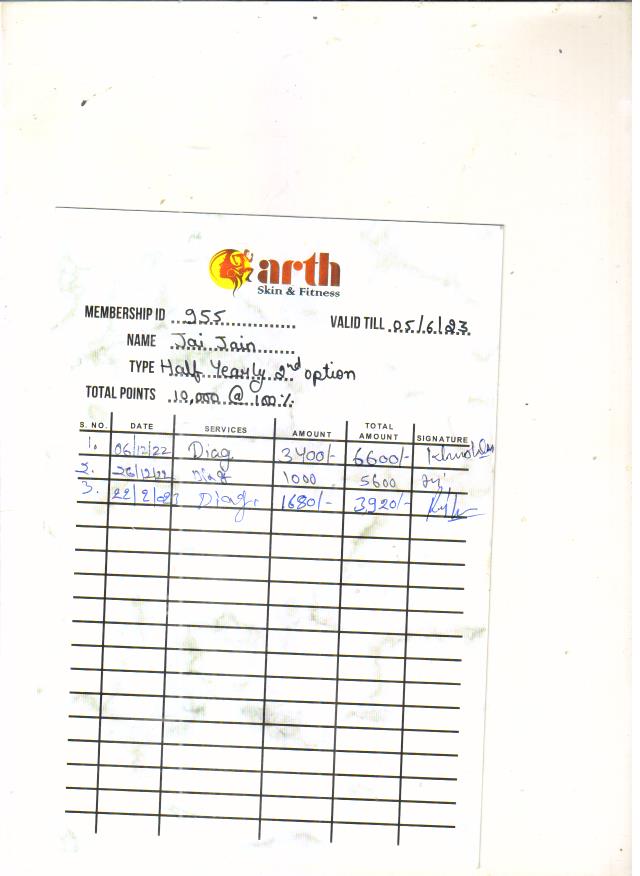 arth
Skin & Fitness
MEMBERSHIP ID 955
VALID TILL 05/6/23
NAME Jai Jain
TYPE Half Yearly 2nd option
TOTAL POINTS 10,000 @ 100%
S. NO. DATE SERVICES AMOUNT TOTAL AMOUNT SIGNATURE
1. 06/12/22 Diag. 3400/- 6600/-
2. 26/12/22 Diag 1000 5600
3. 22/2/23 Diag. 1680/- 3920/-